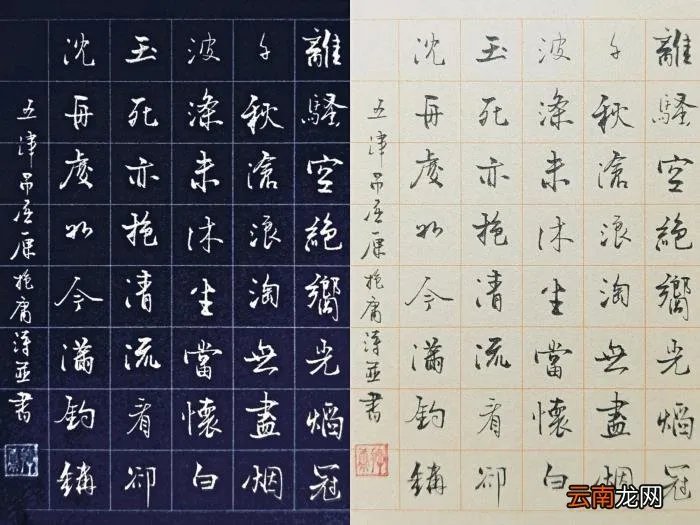 離騷空絕響光焰冠
千秋滄浪淘無盡烟
波滌未休生當懷白
玉死亦抱清流看卻
沈舟處如今滿釣
五律吊屈原抱庸書
離騷空絕響光焰冠
千秋滄浪淘無盡烟
波滌未休生當懷白
玉死亦抱清流看卻
沈舟處如今滿釣
五律吊屈原抱庸書
云南龙网